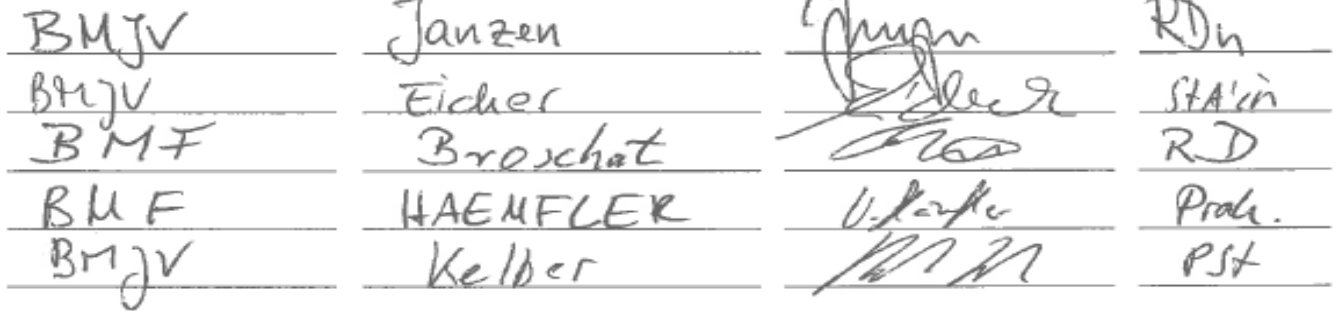 BMJV Janzen RDn
BMJV Eicher StA'in
BMF Broschat RD
BMF HAEMFLER Prak.
BMJV Kelber PSt